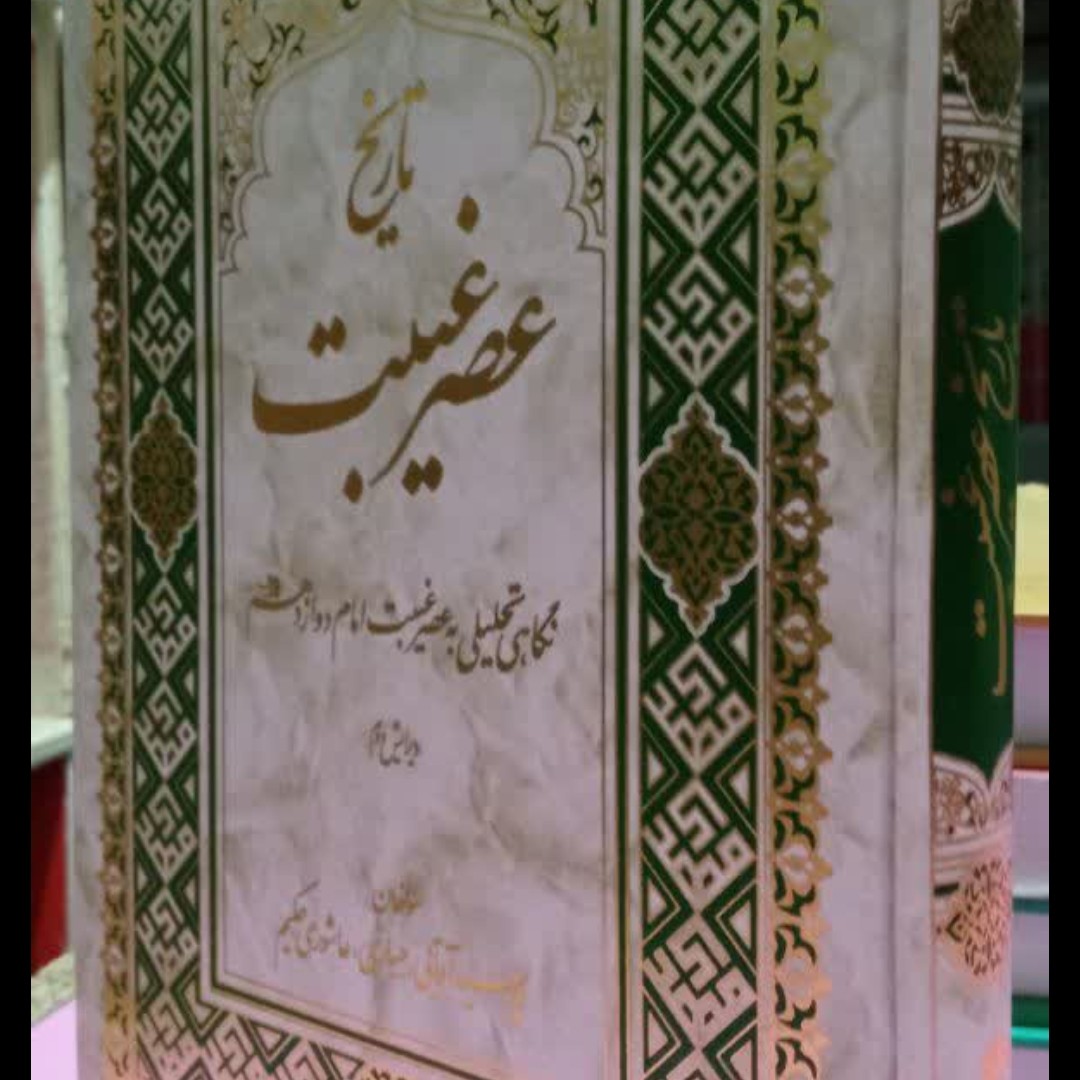 تاریخ
عصر غیبت
نگاهی تحلیلی به عصر غیبت امام دوازدهم
ویرایش دوم
مؤلفان
پورسید آقایی، جباری، عاشوری، حکیم
تاریخ عصر غیبت